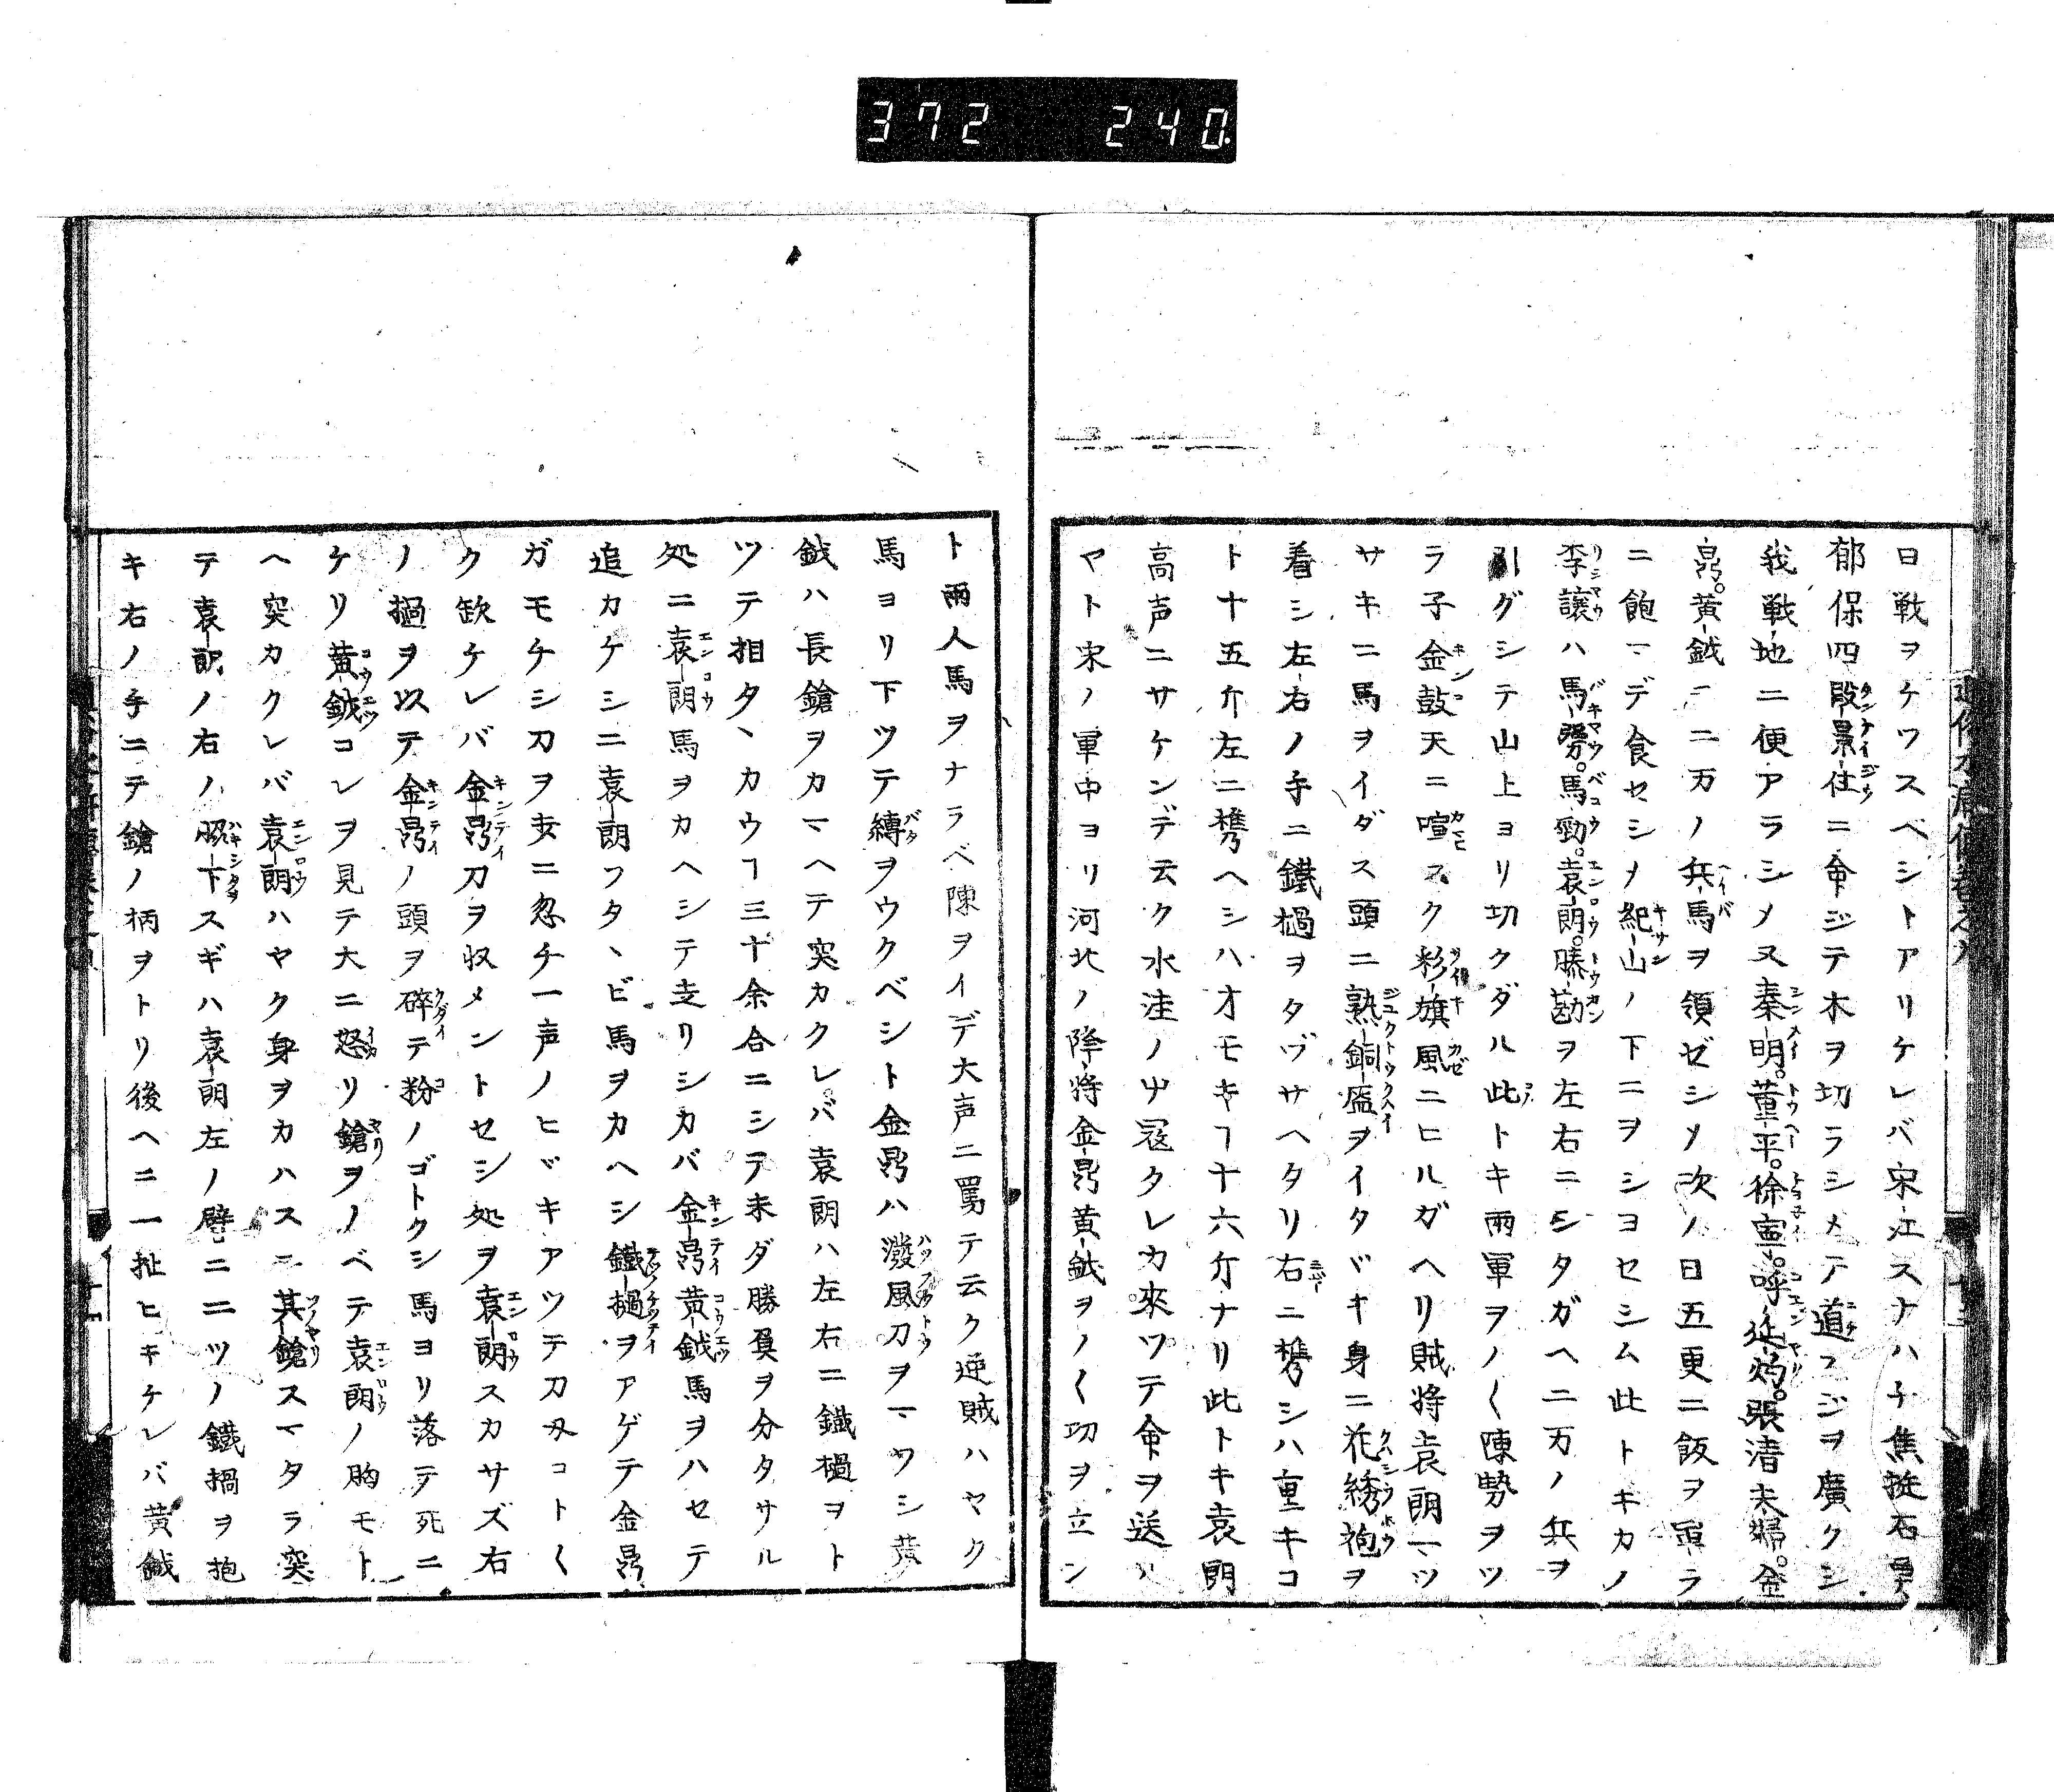 372 240
日戦ヲケワスベシトアリケレバ宋江スナハチ焦挺石勇
郁保四段景住ニ命ジテ木ヲ切ラシメテ道スジヲ廣クシ
我戦地ニ便アラシメ又秦明。董平。徐寧。呼延灼。張清夫婦。金
鼎。黄鉞ニ二万ノ兵馬ヲ領ゼシメ次ノ日五更ニ飯ヲ軍ラ
ニ飽マデ食セシメ紀山ノ下ニヲシヨセシム此トキカノ
李譲ハ馬彊。馬勁。袁朗。滕戡ヲ左右ニシタガヘ二万ノ兵ヲ
引グシテ山上ヨリ切クダル此トキ両軍ヲノ〱陳勢ヲツ
ラ子金鼓天ニ喧スク彩旗風ニヒルガヘリ賊将袁朗マツ
サキニ馬ヲイダス頭ニ熟銅盔ヲイタヾキ身ニ花綉袍ヲ
着シ左右ノ手ニ鐵撾ヲタヅサヘタリ右ニ携シハ重キコ
ト十五斤左ニ携ヘシハオモキヿ十六斤ナリ此トキ袁朗
高声ニサケンデ云ク水洼ノ艸冦タレカ來ツテ命ヲ送ル
ヤト宋ノ軍中ヨリ河北ノ降将金鼎黄鉞ヲノ〱功ヲ立ン
ト両人馬ヲナラベ陳ヲイデ大声ニ罵テ云ク逆賊ハヤク
馬ヨリ下ツテ縛ヲウクベシト金鼎ハ潑風刀ヲマワシ黄
鉞ハ長鎗ヲカマヘテ突カクレバ袁朗ハ左右ニ鐵撾ヲト
ツテ相タヽカウヿ三十余合ニシテ未ダ勝負ヲ分タサル
処ニ袁朗馬ヲカヘシテ走リシカバ金鼎黄鉞馬ヲハセテ
追カケシニ袁朗フタヽビ馬ヲカヘシ鐵撾ヲアゲテ金鼎
ガモチシ刀ヲ丈ニ忽チ一声ノヒヾキアツテ刀叉コト〱
ク欽ケレバ金鼎刀ヲ収メントセシ処ヲ袁朗スカサズ右
ノ撾ヲ以テ金鼎ノ頭ヲ碎テ粉ノゴトクシ馬ヨリ落テ死ニ
ケリ黄鉞コレヲ見テ大ニ怒リ鎗ヲノベテ袁朗ノ胸モト
ヘ突カクレバ袁朗ハヤク身ヲカハスニ其鎗スマタラ突
テ袁朗ノ右ノ脇下スギハ袁朗左ノ臂ニ二ツノ鐵撾ヲ抱
キ右ノ手ニテ鎗ノ柄ヲトリ後ヘニ一扯ヒキケレバ黄鉞